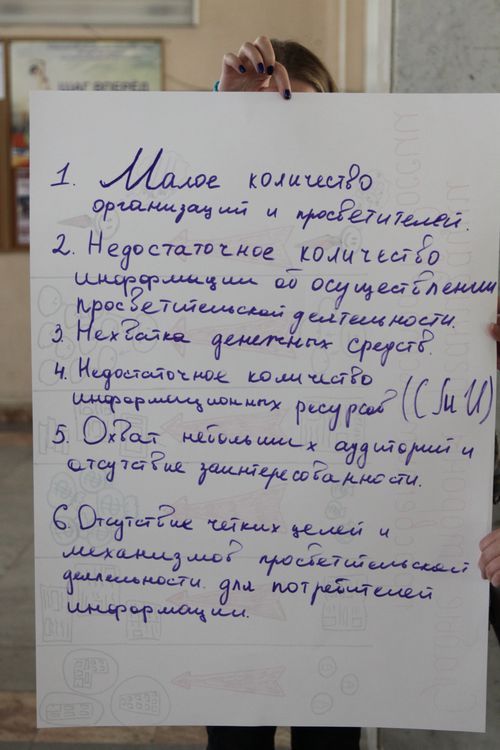 ШАГ ВПЕРЁД
1. Малое количество
организаций и просветителей.
2. Недостаточное количество
информации об осуществлении
просветительской деятельности.
3. Нехватка денежных средств.
4. Недостаточное количество
информационных ресурсов (СМИ)
5. Охват небольших аудиторий и
отсутствие заинтересованности.
6. Отсутствие чётких целей и
механизмов просветительской
деятельности для потребителей
информации.